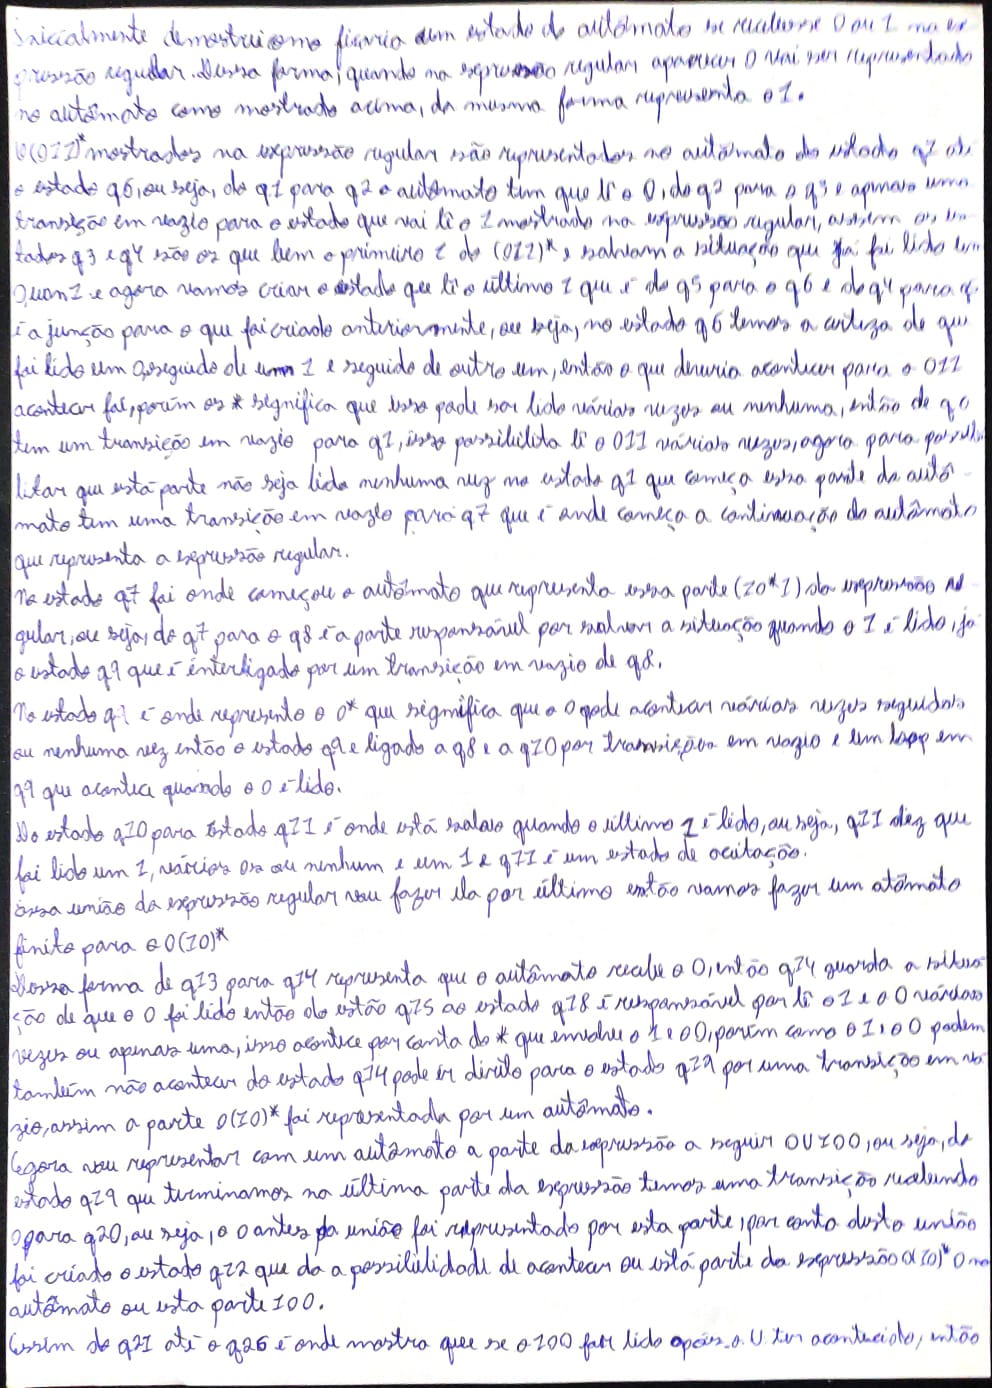 Inicialmente demostrei como ficaria um estado do autômato se recebesse 0 ou 1 na ex-
pressão regular. Dessa forma, quando na expressão regular aparecer 0 vai ser representado
no autômato como mostrado acima, da mesma forma representa o 1.
O (011)* mostrados na expressão regular são representados no autômato do estado q1 até
o estado q6, ou seja, do q1 para q2 o autômato tem que lê o 0, do q2 para o q3 e apenas uma
transição em vazio para o estado que vai lê o 1 mostrado na expressão regular, assim os es-
tados q3 e q4 são os que leem o primeiro 1 do (011)*, salvam a situação que já foi lido um
0, um 1 e agora vamos criar o estado que lê o último 1 que é do q5 para o q6 e do q4 para q5
é a junção para o que foi criado anteriormente, ou seja, no estado q6 temos a certeza de que
foi lido um 0, seguido de um 1 e seguido de outro um, então o que deveria acontecer para o 011
acontecer foi, porém os * significa que isso pode ser lido várias vezes ou nenhuma, então de q6
tem um transição em vazio para q1, isso possibilita lê o 011 várias vezes, agora para possibi-
litar que está parte não seja lida nenhuma vez no estado q1 que começa essa parte do autô-
mato tem uma transição em vazio para q7 que é onde começa a continuação do autômato
que representa a expressão regular.
No estado q7 foi onde começou o autômato que representa essa parte (10*1) da expressão re-
gular, ou seja, do q7 para o q8 é a parte responsável por salvar a situação quando o 1 é lido, já
o estado q9 que é interligado por um transição em vazio de q8.
No estado q9 é onde represento o 0* que significa que o 0 pode acontecer várias vezes seguidas
ou nenhuma vez então o estado q9 e ligado a q8 e a q10 por transição em vazio e um loop em
q9 que acontece quando o 0 é lido.
Do estado q10 para estado q11 é onde está salvo quando o último 1 é lido, ou seja, q11 diz que
foi lido um 1, vários 0s ou nenhum e um 1 e q11 é um estado de aceitação.
essa união da expressão regular vou fazer ela por último então vamos fazer um atômato
finito para o 0(10)*
Dessa forma de q13 para q14 representa que o autômato recebe o 0, então q14 guarda a situa-
ção de que o 0 foi lido então do estão q15 ao estado q18 é responsável por lê o 1 e o 0 várias
vezes ou apenas uma, isso acontece por conta do * que envolve o 1 e o 0, porém como o 1 e o 0 podem
também não acontecer do estado q14 pode ir direto para o estado q19 por uma transição em va-
zio, assim a parte 0(10)* foi representada por um autômato.
Agora vou representar com um autômato a parte da expressão a seguir 0U100, ou seja, do
estado q19 que terminamos na última parte da expressão temos uma transição recebendo
0 para q20, ou seja, o 0 antes da união foi representado por esta parte, por conta desta união
foi criado o estado q12 que da a possibilidade de acontecer ou está parte da expressão 0(10)*0 no
autômato ou esta parte 100.
Assim do q21 até o q26 é onde mostra que se o 100 for lido após o U ter acontecido, então